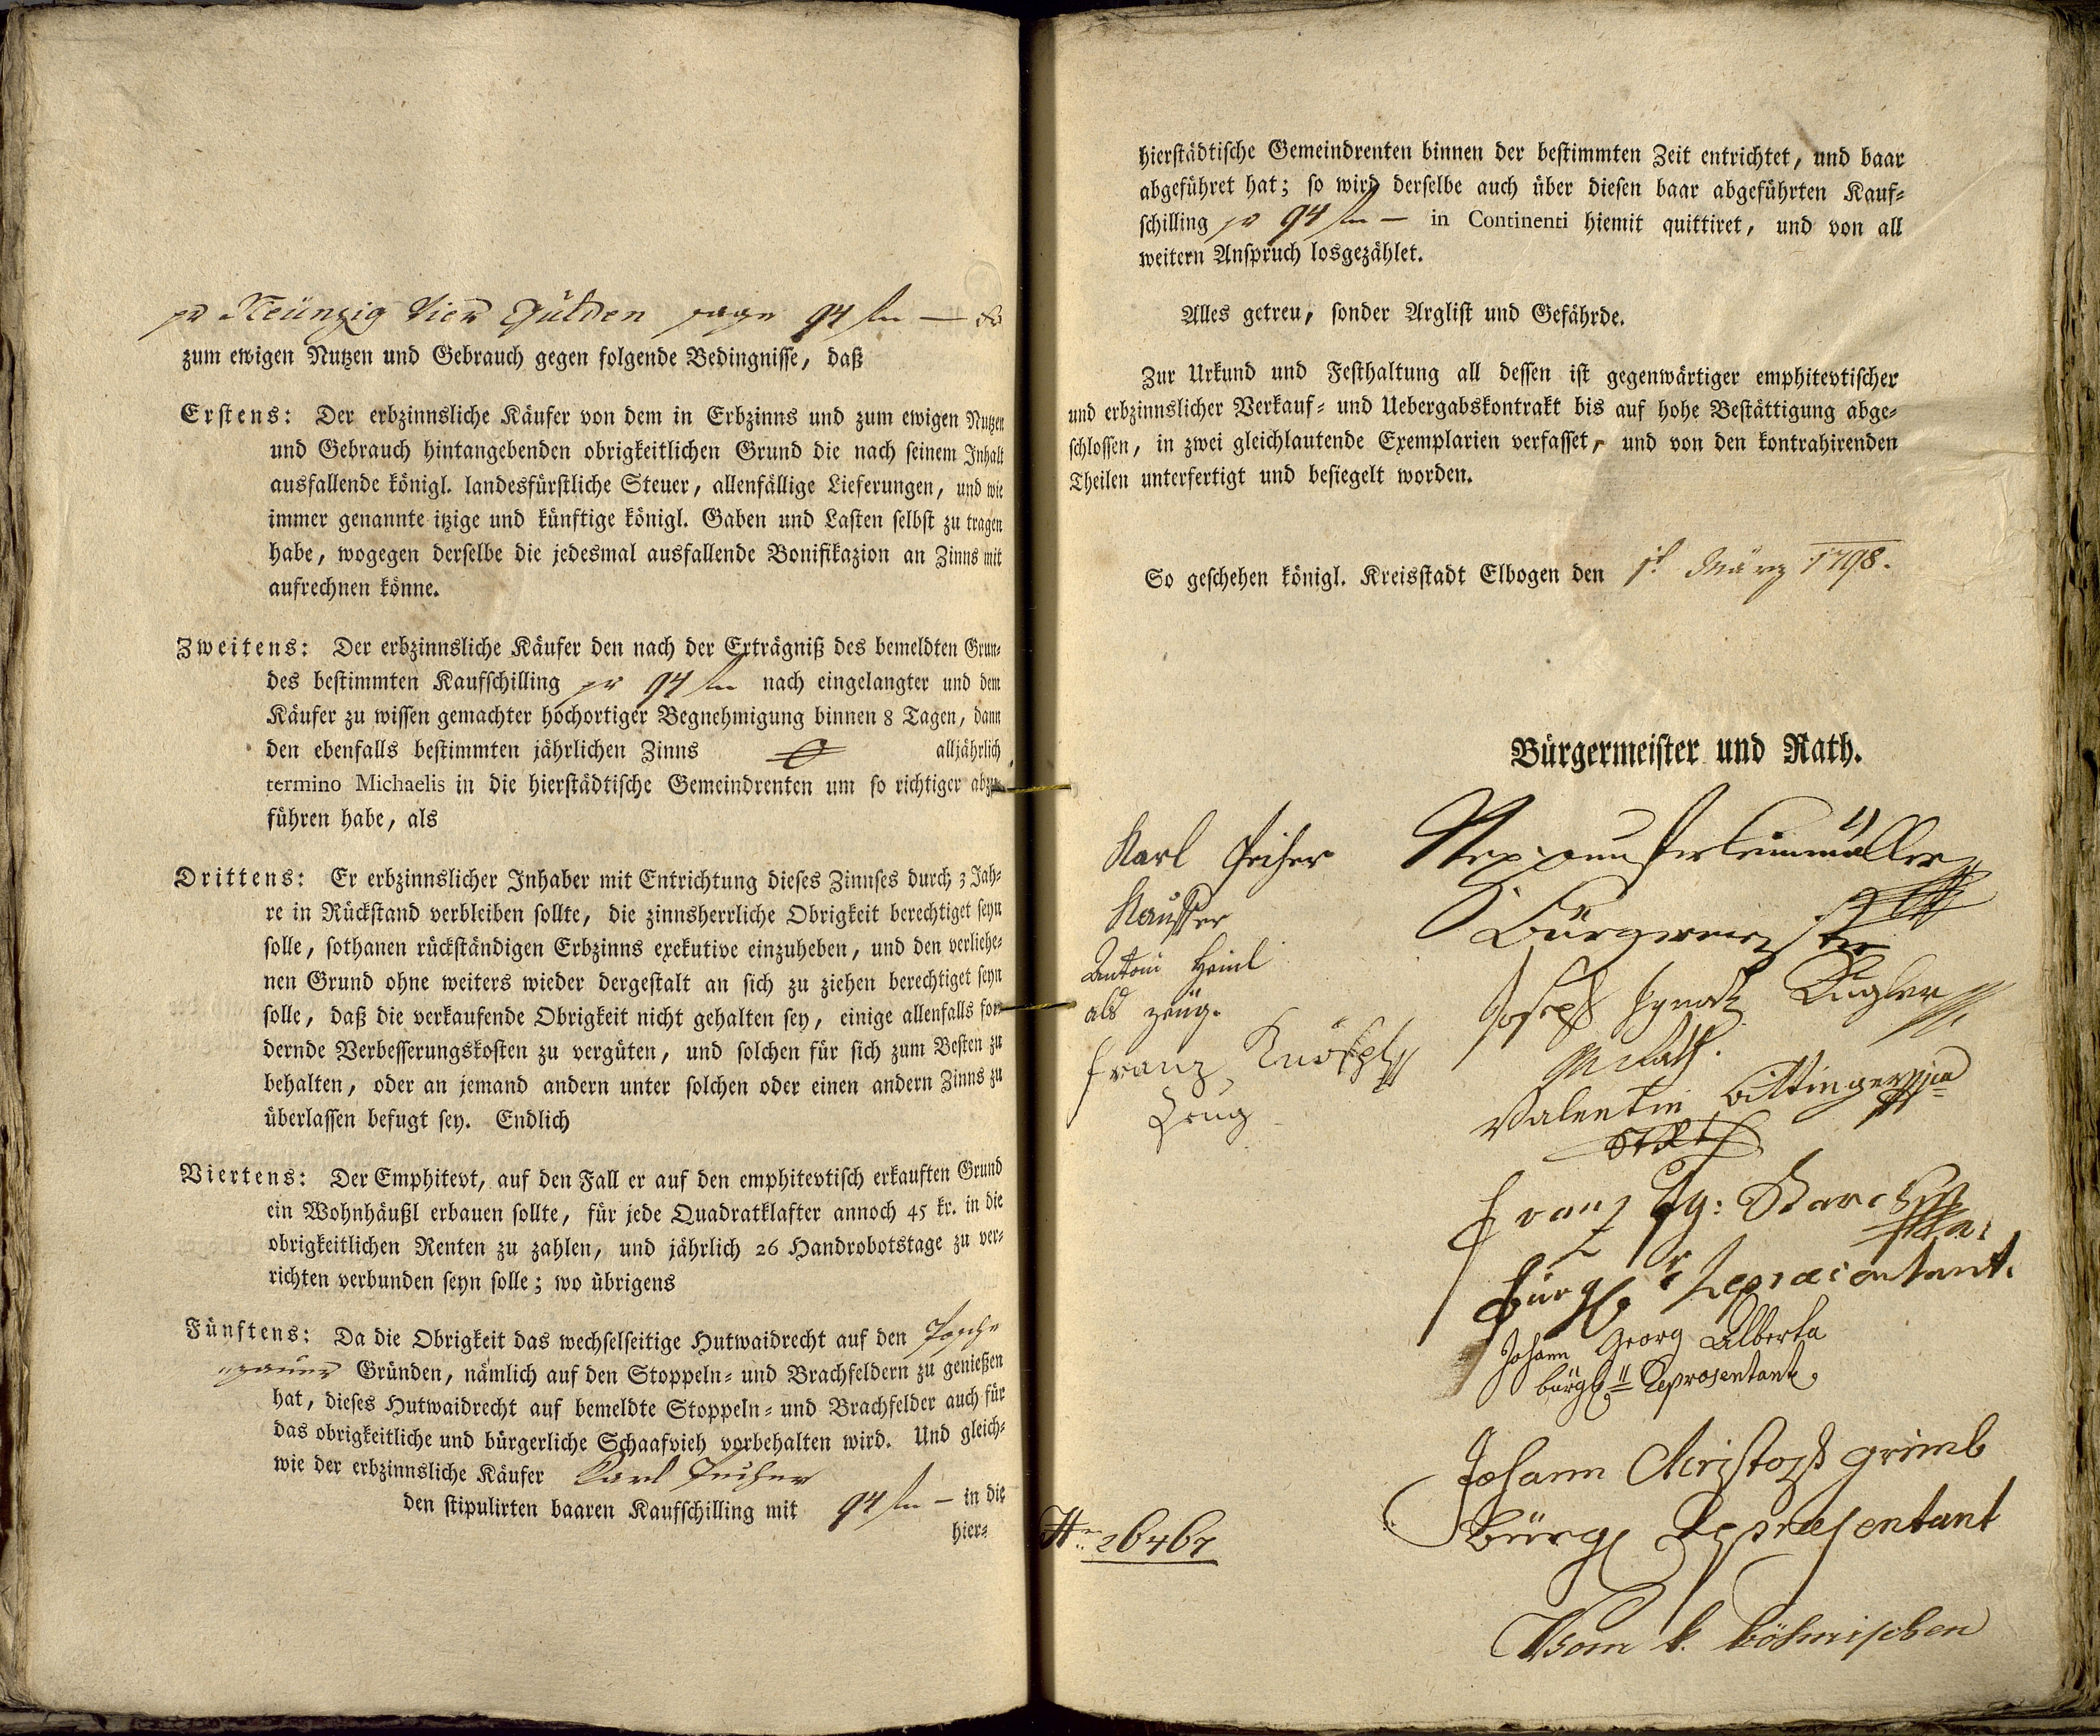 pr Neünzig Vier Gulden sage 94 fl — xr
zum ewigen Nutzen und Gebrauch gegen folgende Bedingnisse, daß
Erstens: Der erbzinnsliche Käufer von dem in Erbzinns und zum ewigen Nutzen
und Gebrauch hintangebenden obrigkeitlichen Grund die nach seinem Inhalt
ausfallende königl. landesfürstliche Steuer, allenfällige Lieferungen, und wie
immer genannte itzige und künftige königl. Gaben und Lasten selbst zu tragen
habe, wogegen derselbe die jedesmal ausfallende Bonifikazion an Zinns mit
aufrechnen könne.
Zweitens: Der erbzinnsliche Käufer den nach der Erträgniß des bemeldten Grun-
des bestimmten Kaufschilling pr 94 fl nach eingelangter und dem
Käufer zu wissen gemachter hochortiger Begnehmigung binnen 8 Tagen, dann
den ebenfalls bestimmten jährlichen Zinns alljährlich
termino Michaelis in die hierstädtische Gemeindrenten um so richtiger abzu-
führen habe, als
Drittens: Er erbzinnslicher Inhaber mit Entrichtung dieses Zinnses durch 3 Jah-
re in Rückstand verbleiben sollte, die zinnsherrliche Obrigkeit berechtiget seyn
solle, sothanen rückständigen Erbzinns exekutive einzuheben, und den verliehe-
nen Grund ohne weiters wieder dergestalt an sich zu ziehen berechtiget seyn
solle, daß die verkaufende Obrigkeit nicht gehalten sey, einige allenfalls for-
dernde Verbesserungskosten zu vergüten, und solchen für sich zum Besten zu
behalten, oder an jemand andern unter solchen oder einen andern Zinns zu
überlassen befugt sey. Endlich
Viertens: Der Emphitevt, auf den Fall er auf den emphitevtisch erkauften Grund
ein Wohnhäußl erbauen sollte, für jede Quadratklafter annoch 45 kr. in die
obrigkeitlichen Renten zu zahlen, und jährlich 26 Handrobotstage zu ver-
richten verbunden seyn solle; wo übrigens
Fünftens: Da die Obrigkeit das wechselseitige Hutwaidrecht auf den
Gründen, nämlich auf den Stoppeln- und Brachfeldern zu genießen
hat, dieses Hutwaidrecht auf bemeldte Stoppeln- und Brachfelder auch für
das obrigkeitliche und bürgerliche Schaafvieh vorbehalten wird. Und gleich-
wie der erbzinnsliche Käufer Karl
den stipulirten baaren Kaufschilling mit 94 fl — in die
hier-
hierstädtische Gemeindrenten binnen der bestimmten Zeit entrichtet, und baar
abgeführet hat; so wird derselbe auch über diesen baar abgeführten Kauf-
schilling pr 94 fl — in Continenti hiemit quittiret, und von all
weitern Anspruch losgezählet.
Alles getreu, sonder Arglist und Gefährde.
Zur Urkund und Festhaltung all dessen ist gegenwärtiger emphitevtischer
und erbzinnslicher Verkauf- und Uebergabskontrakt bis auf hohe Bestättigung abge-
schlossen, in zwei gleichlautende Exemplarien verfasset, und von den kontrahirenden
Theilen unterfertigt und besiegelt worden.
So geschehen königl. Kreisstadt Elbogen den 1t März 1798.
Bürgermeister und Rath.
Karl
Kauffer
Antoni Heinl
als zeüg.
Franz Knöspl
Zeug
Bürgermeister
Joseph Ignatz
M Rath.
Valentin
Franz Ig:
Bürgl Repraesentant.
Johann Georg Alberta
bürgl Representant.
Johann Christoph grimb
Bürgl Representant
Vom k. böhmischen
26467